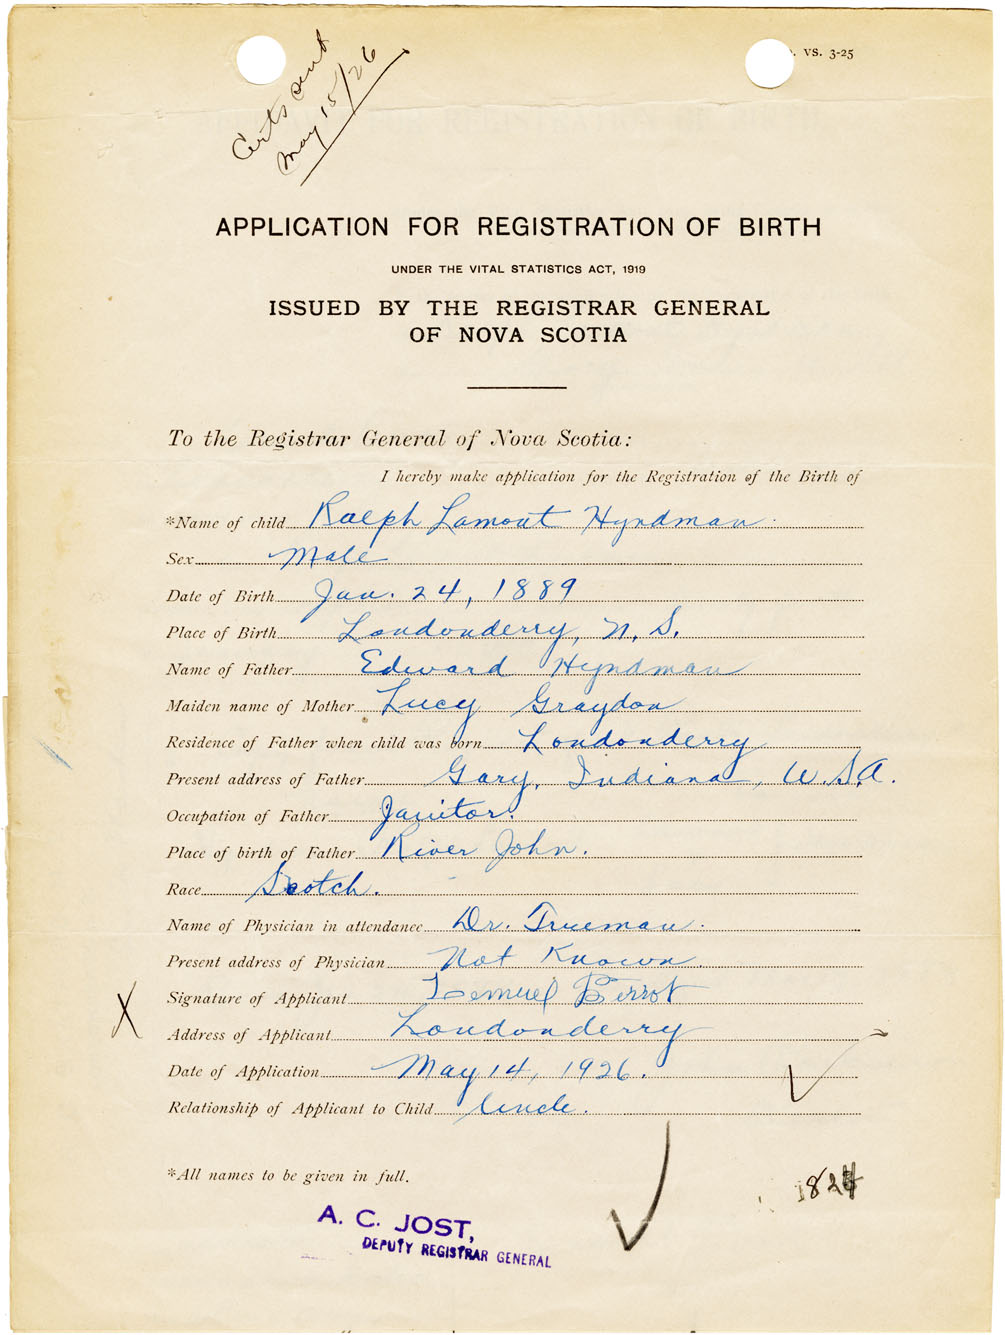 Certs sent
May 15/26
. VS. 3-25
APPLICATION FOR REGISTRATION OF BIRTH
UNDER THE VITAL STATISTICS ACT, 1919
ISSUED BY THE REGISTRAR GENERAL
OF NOVA SCOTIA
To the Registrar General of Nova Scotia:
I hereby make application for the Registration of the Birth of
*Name of child Ralph Lamont Hyndman.
Sex Male
Date of Birth Jan. 24, 1889
Place of Birth Londonderry, N. S.
Name of Father Edward Hyndman
Maiden name of Mother Lucy Graydon
Residence of Father when child was born Londonderry
Present address of Father Gary, Indiana, U.S.A.
Occupation of Father Janitor.
Place of birth of Father River John.
Race Scotch.
Name of Physician in attendance Dr. Trueman.
Present address of Physician Not Known.
X Signature of Applicant Lemuel Perrot
Address of Applicant Londonderry
Date of Application May 14, 1926.
Relationship of Applicant to Child Uncle.
*All names to be given in full.
A. C. JOST,
DEPUTY REGISTRAR GENERAL